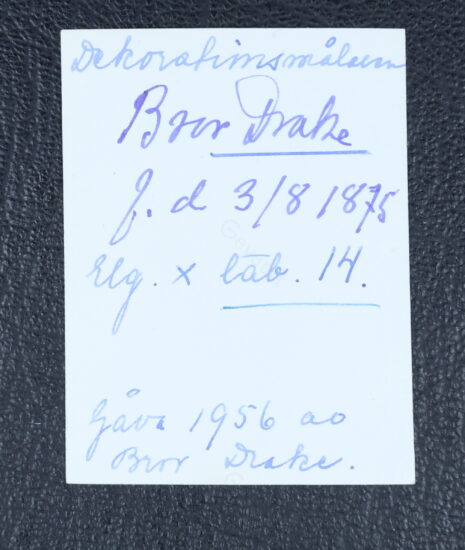 Dekorationsmålaren
Bror Drake
f. d 3/8 1875
Elg. x tab. 14.
Gåva 1956 av
Bror Drake.